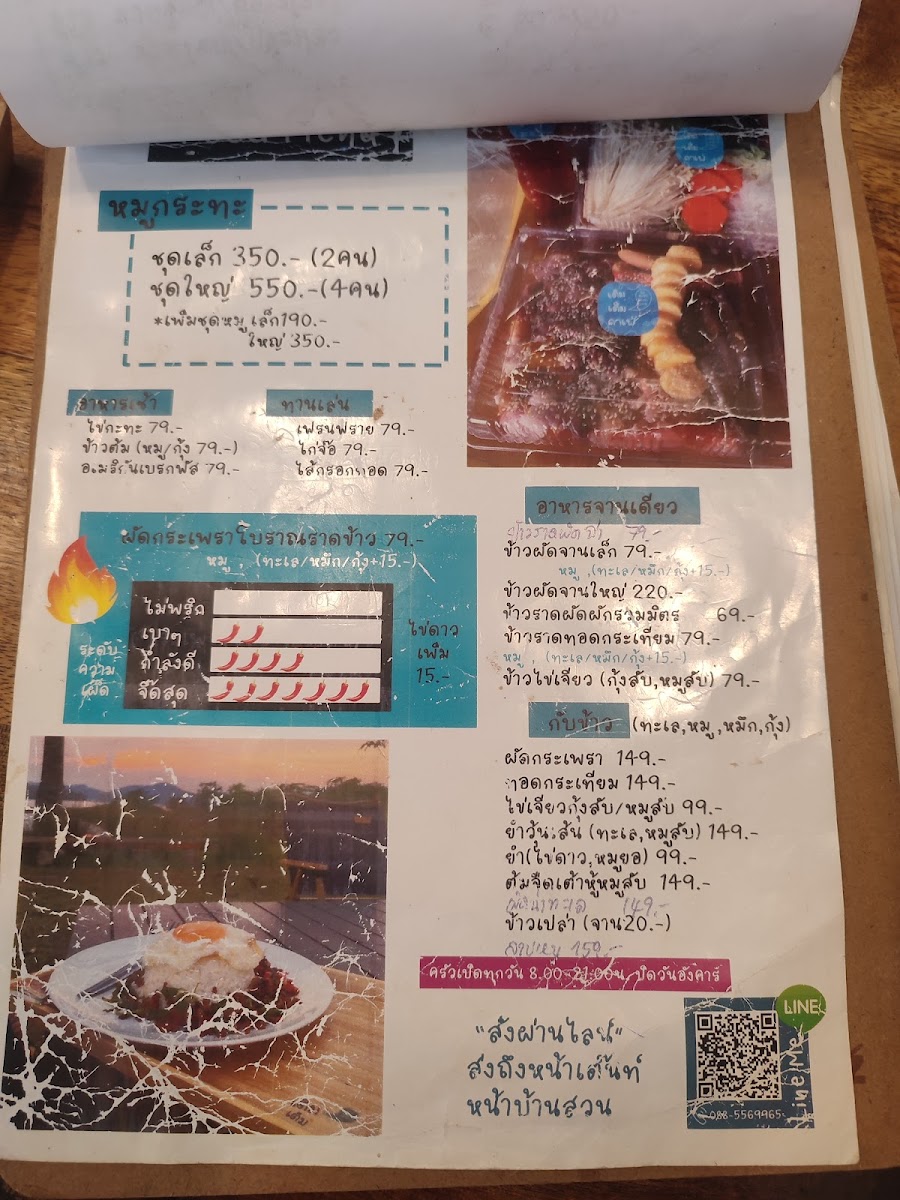 หมูกระทะ
ชุดเล็ก 350.- (2คน)
ชุดใหญ่ 550.-(4คน)
*เพิ่มชุดหมู เล็ก190.-
ใหญ่ 350.-
เติม
เต็ม
คาเฟ่
อาหารเช้า
ไข่กะทะ 79.-
ข้าวต้ม (หมู/กุ้ง 79.-)
อเมริกันเบรกฟัส 79.-
ทานเล่น
เฟรนฟราย 79.-
ไก่จ๊อ 79.-
ไส้กรอกทอด 79.-
ผัดกระเพราโบราณราดข้าว 79.-
หมู , (ทะเล/หมึก/กุ้ง+15.-)
ระดับ
ความ
เผ็ด
ไม่พริก
เบาๆ
กำลังดี
จี๊ดสุด
ไข่ดาว
เพิ่ม
15.-
อาหารจานเดียว
79.-
ข้าวผัดจานเล็ก 79.-
หมู ,(ทะเล/หมึก/กุ้ง+15.-)
ข้าวผัดจานใหญ่ 220.-
ข้าวราดผัดผักรวมมิตร 69.-
ข้าวราดทอดกระเทียม 79.-
หมู , (ทะเล/หมึก/กุ้ง+15.-)
ข้าวไข่เจียว (กุ้งสับ,หมูสับ) 79.-
กับข้าว (ทะเล,หมู,หมึก,กุ้ง)
ผัดกระเพรา 149.-
ทอดกระเทียม 149.-
ไข่เจียวกุ้งสับ/หมูสับ 99.-
ยำวุ้นเส้น (ทะเล,หมูสับ) 149.-
ยำ(ไข่ดาว,หมูยอ) 99.-
ต้มจืดเต้าหู้หมูสับ 149.-
149.-
ข้าวเปล่า (จาน20.-)
ลาบหมู 159.-
ครัวเปิดทุกวัน 8.00-21.00น. ปิดวันอังคาร์
"สั่งผ่านไลน์"
ส่งถึงหน้าเต้นท์
หน้าบ้านสวน
LINE
088-5569965